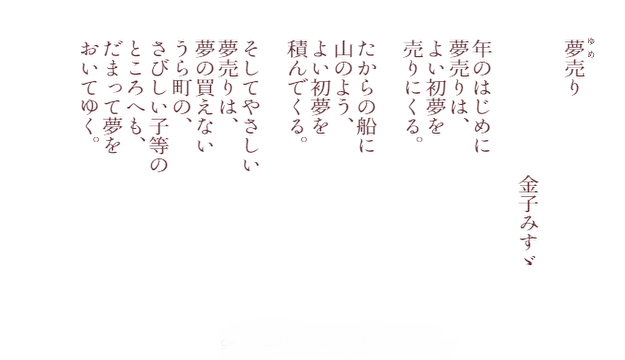 夢売り
ゆめ
金子みすゞ
年のはじめに
夢売りは、
よい初夢を
売りにくる。
たからの船に
山のよう、
よい初夢を
積んでくる。
そしてやさしい
夢売りは、
夢の買えない
うら町の、
さびしい子等の
ところへも、
だまって夢を
おいてゆく。